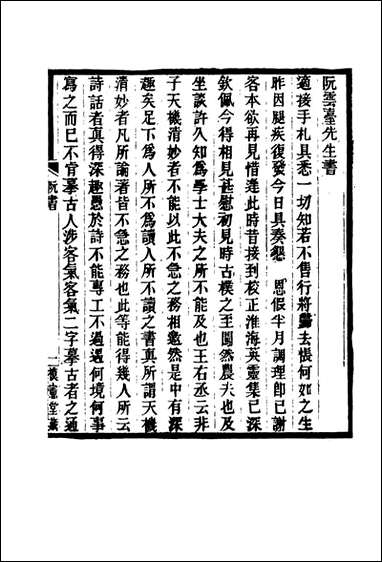 阮雲臺先生書
適接手札具悉一切知若不售行將歸去悵何如之生
昨因腿疾復發今日具奏懇　恩假半月調理卽已謝
客本欲再見惜逢此時昔接到校正淮海英靈集已深
欽佩今得相見甚慰初見時古樸之至闇然農夫也及
坐談許久知爲學士大夫之所不能及也王右丞云非
子天機淸妙者不能以此不急之務相邀然是中有深
趣矣足下爲人所不爲讀人所不讀之書眞所謂天機
淸妙者凡所論著皆不急之務也此等能得幾人所云
詩話者眞得深趣愚於詩不能專工不過遇何境何事
寫之而已不肯摹古人涉客氣客氣二字摹古者之通
阮書
一
穗堂叢